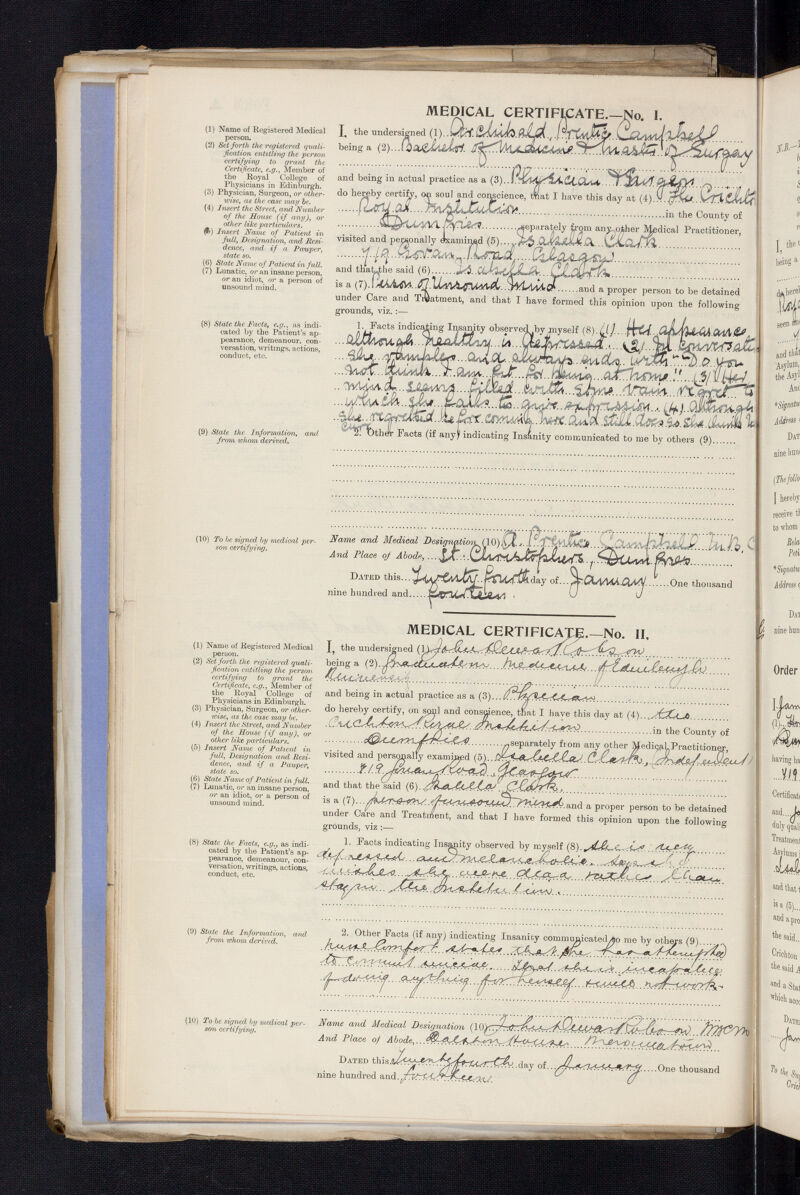 MEDICAL CERTIFICATE.—No. I.
(1) Name of Registered Medical person.
(2) Set forth the registered qualification entitling the person certifying to grant the Certificate, e.g., Member of the Royal College of Physicians in Edinburgh.
(3) Physician, Surgeon, or otherwise, as the case may be.
(4) Insert the Street, and Number of the House (if any), or other like particulars.
(5) Insert Name of Patient in full, Designation, and Residence, and if a Pauper, state so.
(6) State Name of Patient in full.
(7) Lunatic, or an insane person, or an idiot, or a person of unsound mind.
I, the undersigned (1) Archibald Prentice Campbell
being a (2) Bachelor of Medicine & Master of Surgery
and being in actual practice as a (3) Physician & Surgeon
do hereby certify, on soul and conscience, that I have this day at (4) The Crichton
Royal Institution in the County of
Dumfries separately from any other Medical Practitioner,
visited and personally examined (5) Isabella Clark
719 Govan Road, Glasgow
and that the said (6) Isabella Clark
is a (7) Person of Unsound Mind and a proper person to be detained
under Care and Treatment, and that I have formed this opinion upon the following
grounds, viz. :—
(8) State the Facts, e.g., as indicated by the Patient's appearance, demeanour, conversation, writings, actions, conduct, etc.
1. Facts indicating Insanity observed by myself (8) (1) Her appearance
although healthy is depressed. (2) In conversation
she rambles and always ends with "Do you
not think I am fit for being at home" (3) Her
mind seems filled with some vain regret to
which she fails to give expression. (4) Although
she regretted before coming here and still does so she thinks
(9) State the Information, and from whom derived.
2. Other Facts (if any) indicating Insanity communicated to me by others (9)
(10) To be signed by medical person certifying.
Name and Medical Designation (10) A. Prentice Campbell M.B. C
And Place of Abode, St. Christophers, Dumfries
DATED this Twenty fourth day of January One thousand
nine hundred and fourteen.
MEDICAL CERTIFICATE.—No. II.
(1) Name of Registered Medical person.
(2) Set forth the registered qualification entitling the person certifying to grant the Certificate, e.g., Member of the Royal College of Physicians in Edinburgh.
(3) Physician, Surgeon, or otherwise, as the case may be.
(4) Insert the Street, and Number of the House (if any), or other like particulars.
(5) Insert Name of Patient in full, Designation, and Residence, and if a Pauper, state so.
(6) State Name of Patient in full.
(7) Lunatic, or an insane person, or an idiot, or a person of unsound mind.
I, the undersigned (1) John Dewar Robson
being a (2) Graduate in Medicine of Edinburgh
University
and being in actual practice as a (3) Physician
do hereby certify, on soul and conscience, that I have this day at (4) the
Crichton Royal Institution in the County of
Dumfries separately from any other Medical Practitioner,
visited and personally examined (5) Isabella Clark, Independent
719 Govan Road, Glasgow
and that the said (6) Isabella Clark,
is a (7) person of unsound mind and a proper person to be detained
under Care and Treatment, and that I have formed this opinion upon the following
grounds, viz :—
(8) State the Facts, e.g., as indicated by the Patient's appearance, demeanour, conversation, writings, actions, conduct, etc.
1. Facts indicating Insanity observed by myself (8) She is very
depressed and melancholic. Says she
wishes she were dead rather than
stay in the Institution.
(9) State the Information, and from whom derived.
2. Other Facts (if any) indicating Insanity communicated to me by others (9)
Nurse Comfort states that she has attempted
to commit suicide. That she is incapable
of doing anything for herself & will not work.
(10) To be signed by medical person certifying.
Name and Medical Designation (10) John Dewar Robson MBCM
And Place of Abode, Dalston House
DATED this Twenty fourth day of January One thousand
nine hundred and fourteen
Order